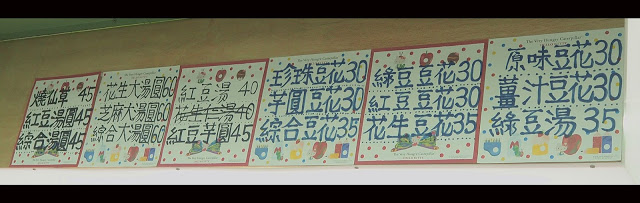 燒仙草 45
紅豆湯圓 45
綜合湯圓 45
花生大湯圓 60
芝麻大湯圓 60
綜合大湯圓 60
紅豆湯 40
花生仁湯 40
紅豆芋圓 45
珍珠豆花 30
芋圓豆花 30
綜合豆花 35
The Very Hungry Caterpillar
綠豆豆花 30
紅豆豆花 30
花生豆花 35
The Very Hungry Caterpillar
原味豆花 30
薑汁豆花 30
綠豆湯 35